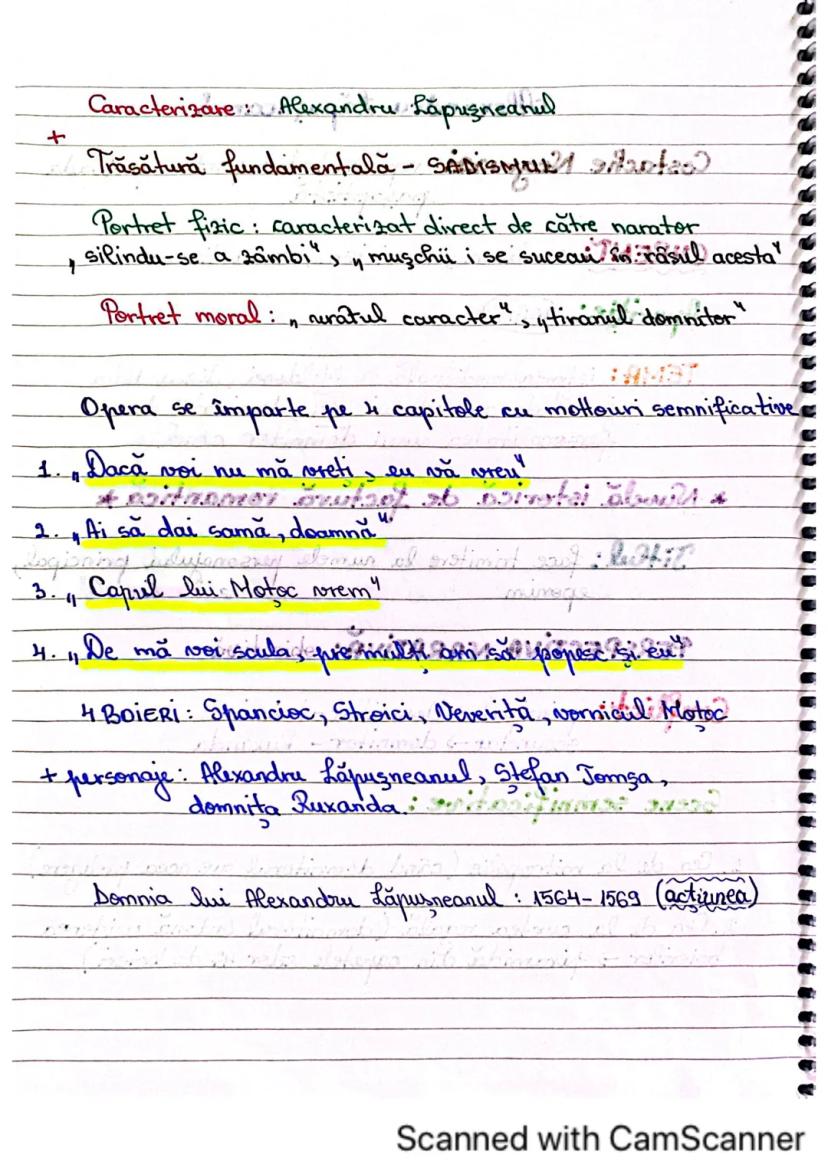 Caracterizare: Alexandru Lăpușneanul
+
Trăsătură fundamentală - SADISMUL
Portret fizic: caracterizat direct de către narator
„silindu-se a zâmbi", „mușchii i se suceau în râsul acesta"
Portret moral: „urâtul caracter", „tiranul domnitor"
Opera se împarte pe 4 capitole cu mottouri semnificative
1. „Dacă voi nu mă vreți, eu vă vreu"
2. „Ai să dai samă, doamnă"
3. „Capul lui Moțoc vrem"
4. „De mă voi scula, pre mulți am să popesc și eu"
4 BOIERI: Spancioc, Stroici, Veveriță, vornicul Moțoc
+ personaje: Alexandru Lăpușneanul, Ștefan Tomșa,
domnița Ruxanda.
Domnia lui Alexandru Lăpușneanul: 1564-1569 (acțiunea)
Scanned with CamScanner